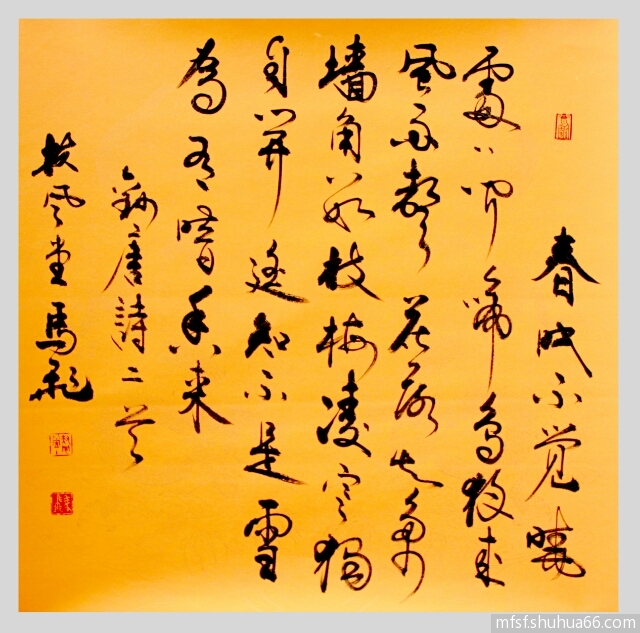 春眠不觉曉
處々闻啼鸟夜来
风雨聲花落知多少
墙角数枝梅凌寒獨
自開遥知不是雪
為有暗香来
錄唐詩二首
风堂馬飛
mfsf.shuhua66.com